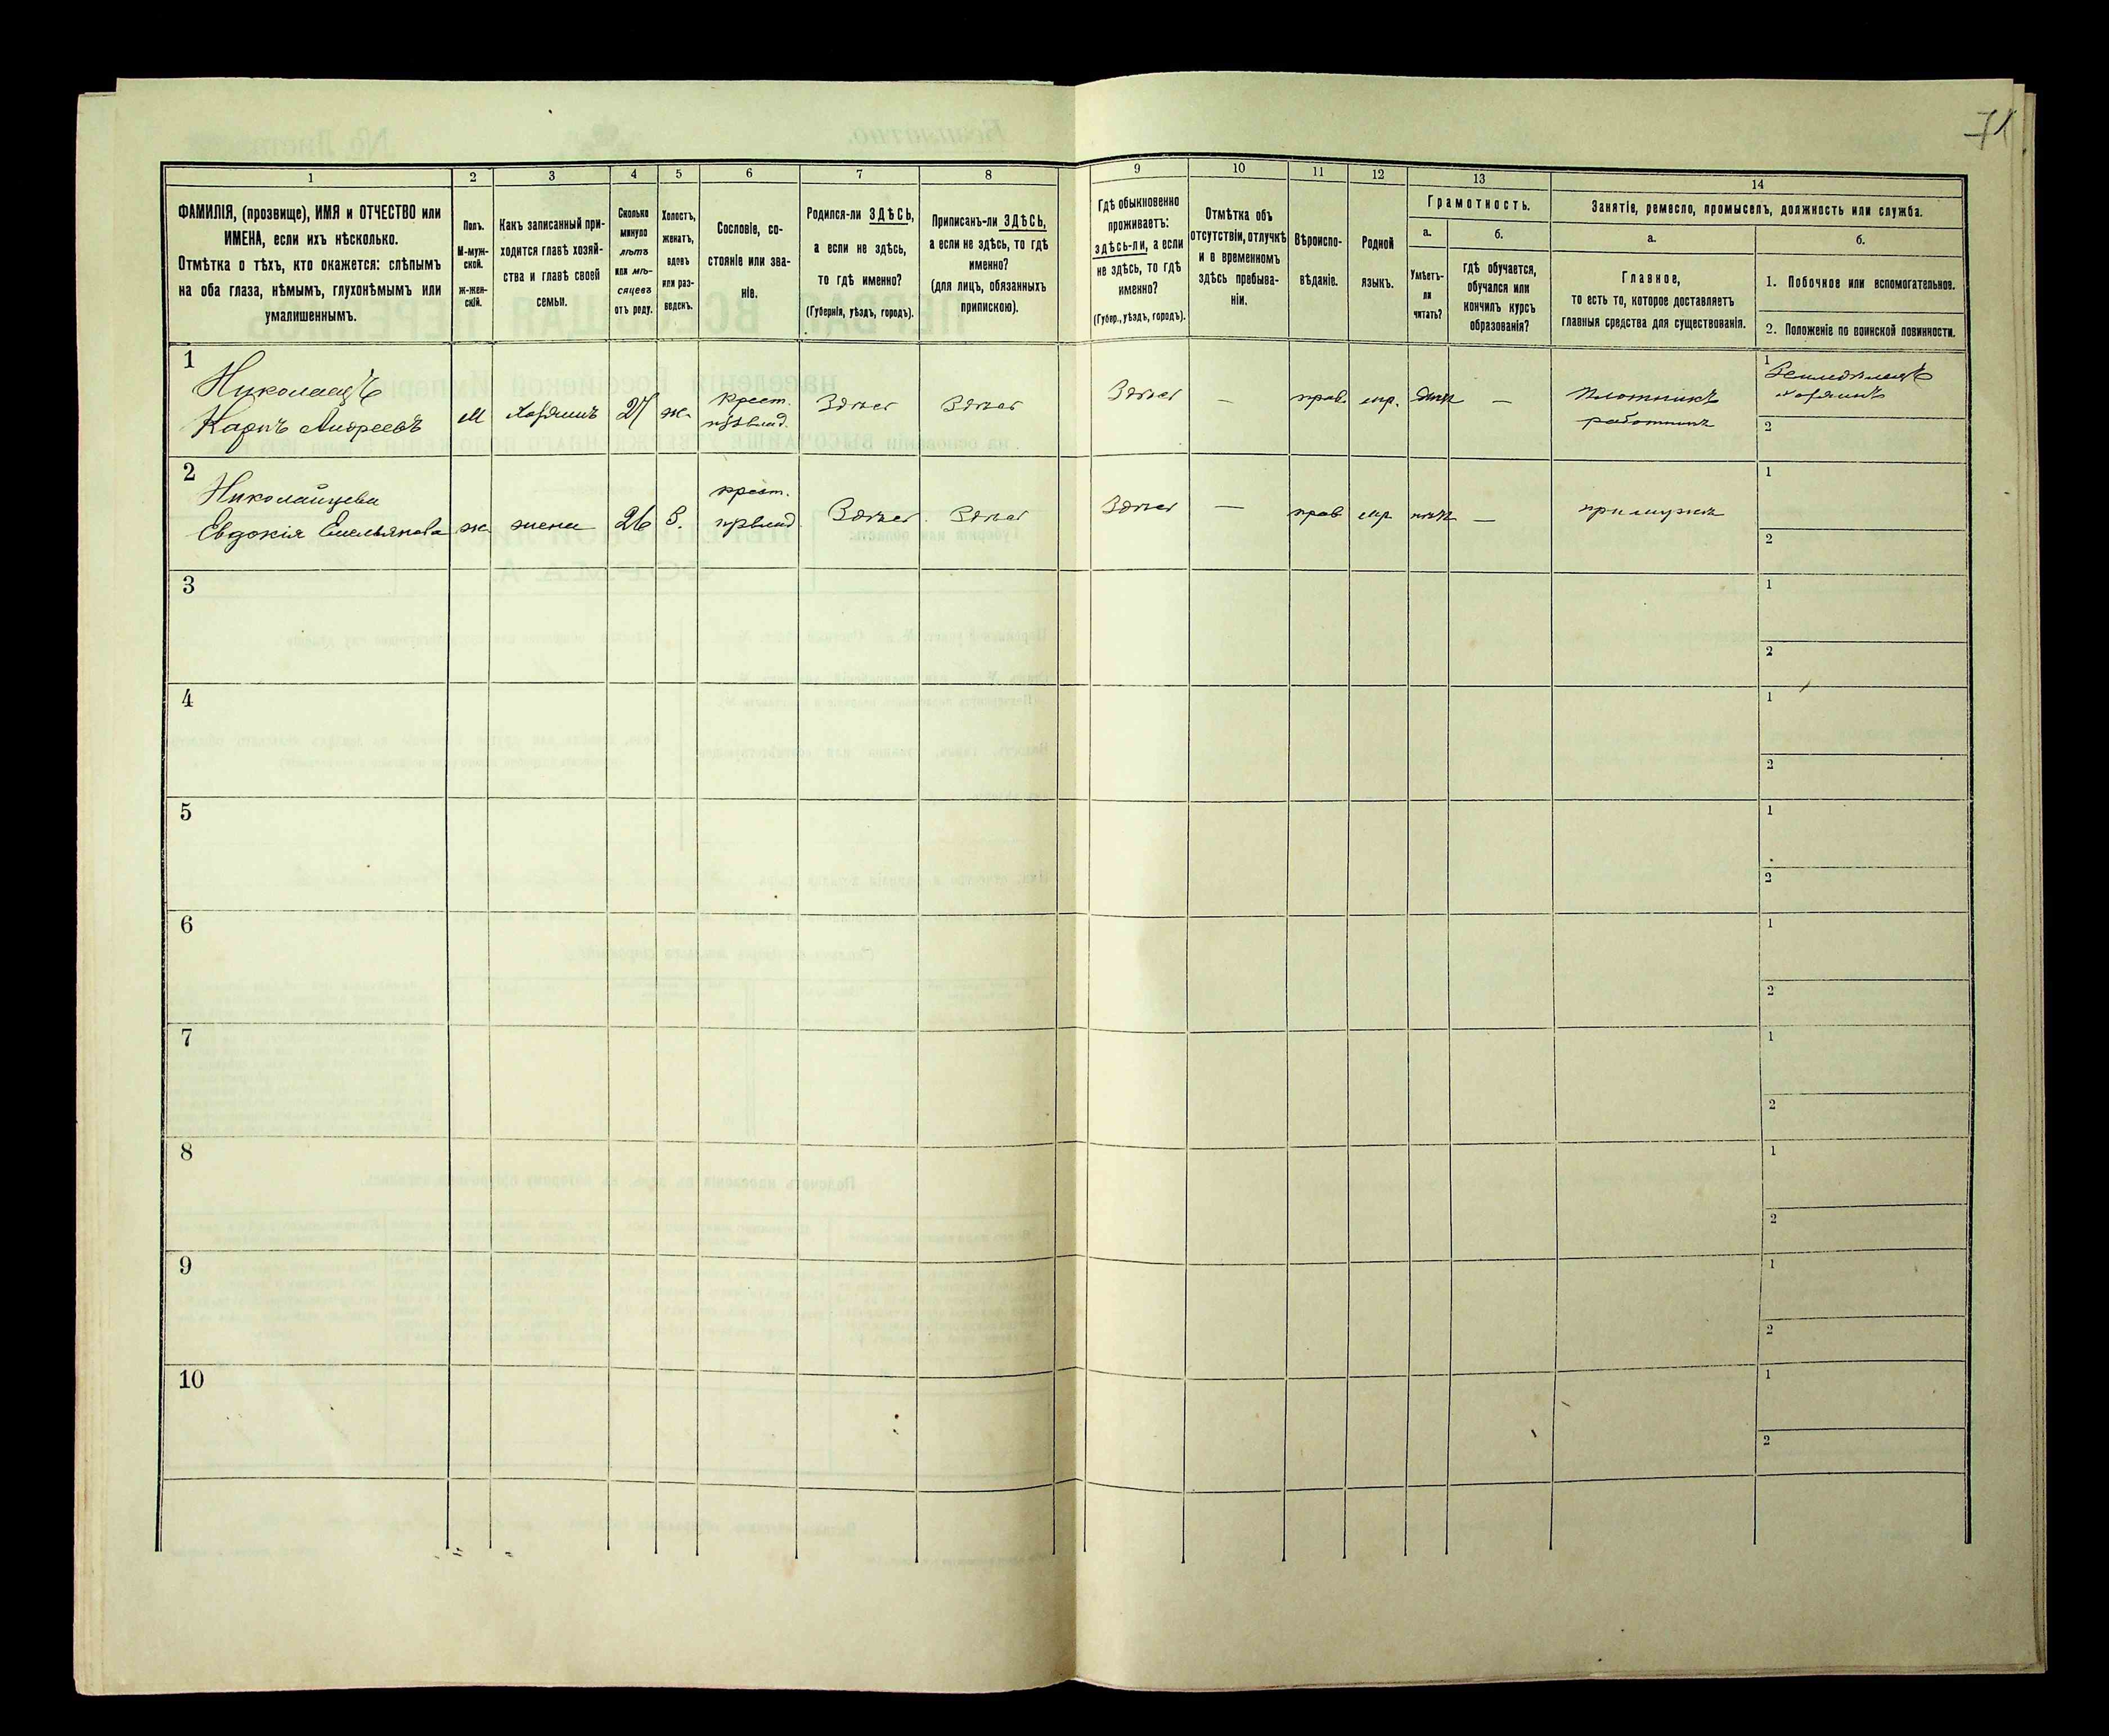 71
1
2
3
4
5
6
7
8
9
10
11
12
13
14
ФАМИЛІЯ, (прозвище), ИМЯ и ОТЧЕСТВО или
ИМЕНА, если ихъ нѣсколько.
Отмѣтка о тѣхъ, кто окажется: слѣпымъ
на оба глаза, нѣмымъ, глухонѣмымъ или
умалишеннымъ.
Полъ.
М-муж-
ской.
ж-жен-
скій.
Какъ записанный при-
ходится главѣ хозяй-
ства и главѣ своей
семьи.
Сколько
минуло
лѣтъ
или мѣ-
сяцевъ
отъ роду.
Холостъ,
женатъ,
вдовъ
или раз-
веденъ.
Сословіе, со-
стояніе или зва-
ніе.
Родился-ли ЗДѢСЬ,
а если не здѣсь,
то гдѣ именно?
(Губернія, уѣздъ, городъ).
Приписанъ-ли ЗДѢСЬ,
а если не здѣсь, то гдѣ
именно?
(для лицъ, обязанныхъ
припискою).
Гдѣ обыкновенно
проживаетъ:
здѣсь-ли, а если
не здѣсь, то гдѣ
именно?
(Губер., уѣздъ, городъ).
Отмѣтка объ
отсутствіи, отлучкѣ
и о временномъ
здѣсь пребыва-
ніи.
Вѣроиспо-
вѣданіе.
Родной
языкъ.
Грамотность.
а.
Умѣетъ-
ли
читать?
б.
гдѣ обучается,
обучался или
кончилъ курсъ
образованія?
Занятіе, ремесло, промыселъ, должность или служба.
а.
Главное,
то есть то, которое доставляетъ
главныя средства для существованія.
б.
1. Побочное или вспомогательное.
2. Положеніе по воинской повинности.
1
Николаецъ
Карпъ Андреевъ
м
хозяинъ
27
ж.
крест.
Здѣсь
Здѣсь
Здѣсь
—
прав.
мр.
—
Плотникъ
работникъ
1
Земледѣлецъ
хозяинъ
2
2
Николайцева
Евдокія Емельянова
ж.
жена
26
З.
крест.
Здѣсь
Здѣсь
Здѣсь
—
прав
мр
нѣтъ
—
при мужѣ
1
2
3
1
2
4
1
2
5
1
2
6
1
2
7
1
2
8
1
2
9
1
2
10
1
2